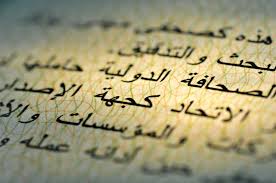 هذه كصحفي
للبحث والتدقيق
الصحافة الدولية حاملي
الاتحاد كجهة الإصدار
كات والمؤسسات والأ
عمله و